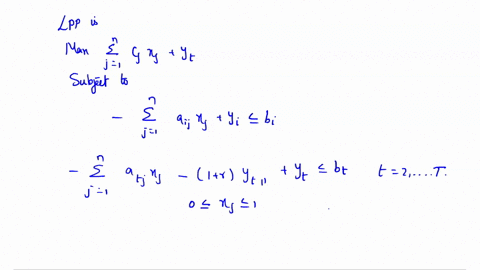 Lpp is
Max ∑_{j=1}^{n} C_j x_j + y_t
Subject to
- ∑_{j=1}^{n} a_{ij} x_j + y_i ≤ b_i
- ∑_{j=1}^{n} a_{tj} x_j - (1+r) y_{t-1} + y_t ≤ b_t t = 2, .... T.
0 ≤ x_j ≤ 1